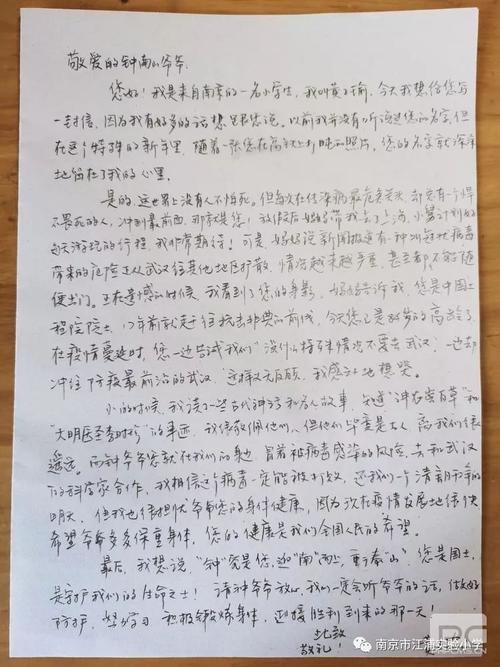 敬爱的钟南山爷爷:
您好!我是来自南京的一名小学生,我叫黄子瑜,今天我想给您写
一封信,因为我有好多的话想跟您说。以前我并没有听说过您的名字,但
在这个特殊的新年里,随着一张您在高铁上打盹的照片,您的名字就深深
地留在了我的心里。
是的,这世界上没有人不怕死。但每次在传染病最危急关头,却总有个悍
不畏死的人,冲到最前面,那就是您!放假后妈妈带我去了上海,小舅计划好
每天游玩的行程,我非常期待!可是,妈妈说新闻报道有一种叫冠状病毒
带来的危险正从武汉往其他地区扩散,情况越来越严重,甚至都不能随
便出门。正在遗憾的时候,我看到了您的身影。妈妈告诉我,您是中国工
程院院士,17年前就赶往抗击非典的前线,今天您已是84岁的高龄了,
在疫情蔓延时,您一边告诫我们"没什么特殊情况不要去武汉",一边却
冲往防疫最前沿的武汉,这样义无反顾,我感动地想哭。
小的时候,我读了一些古代神话和名人故事,知道"神农尝百草"和
"大明医圣李时珍"的事迹,我很敬佩他们,但他们毕竟是古人,离我们很
遥远。而钟爷爷您就在我们的身边,冒着被病毒感染的风险,去和武汉
的科学家合作,我相信这个病毒一定能被打败,还我们一个清朗和平的
明天。但我也很担忧爷爷您的身体健康,因为
希望爷爷多多保重身体,您的健康是我们全国人民的希望。
最后,我想说,"钟"究是您,迎"南"而上,重于泰"山",您是国士,
是守护我们的生命之士!请钟爷爷放心,我们一定会听爷爷的话,做好
防护,努力学习,积极锻炼身体,迎接胜利到来的那一天!
此致
敬礼!
南京市江浦实验小学